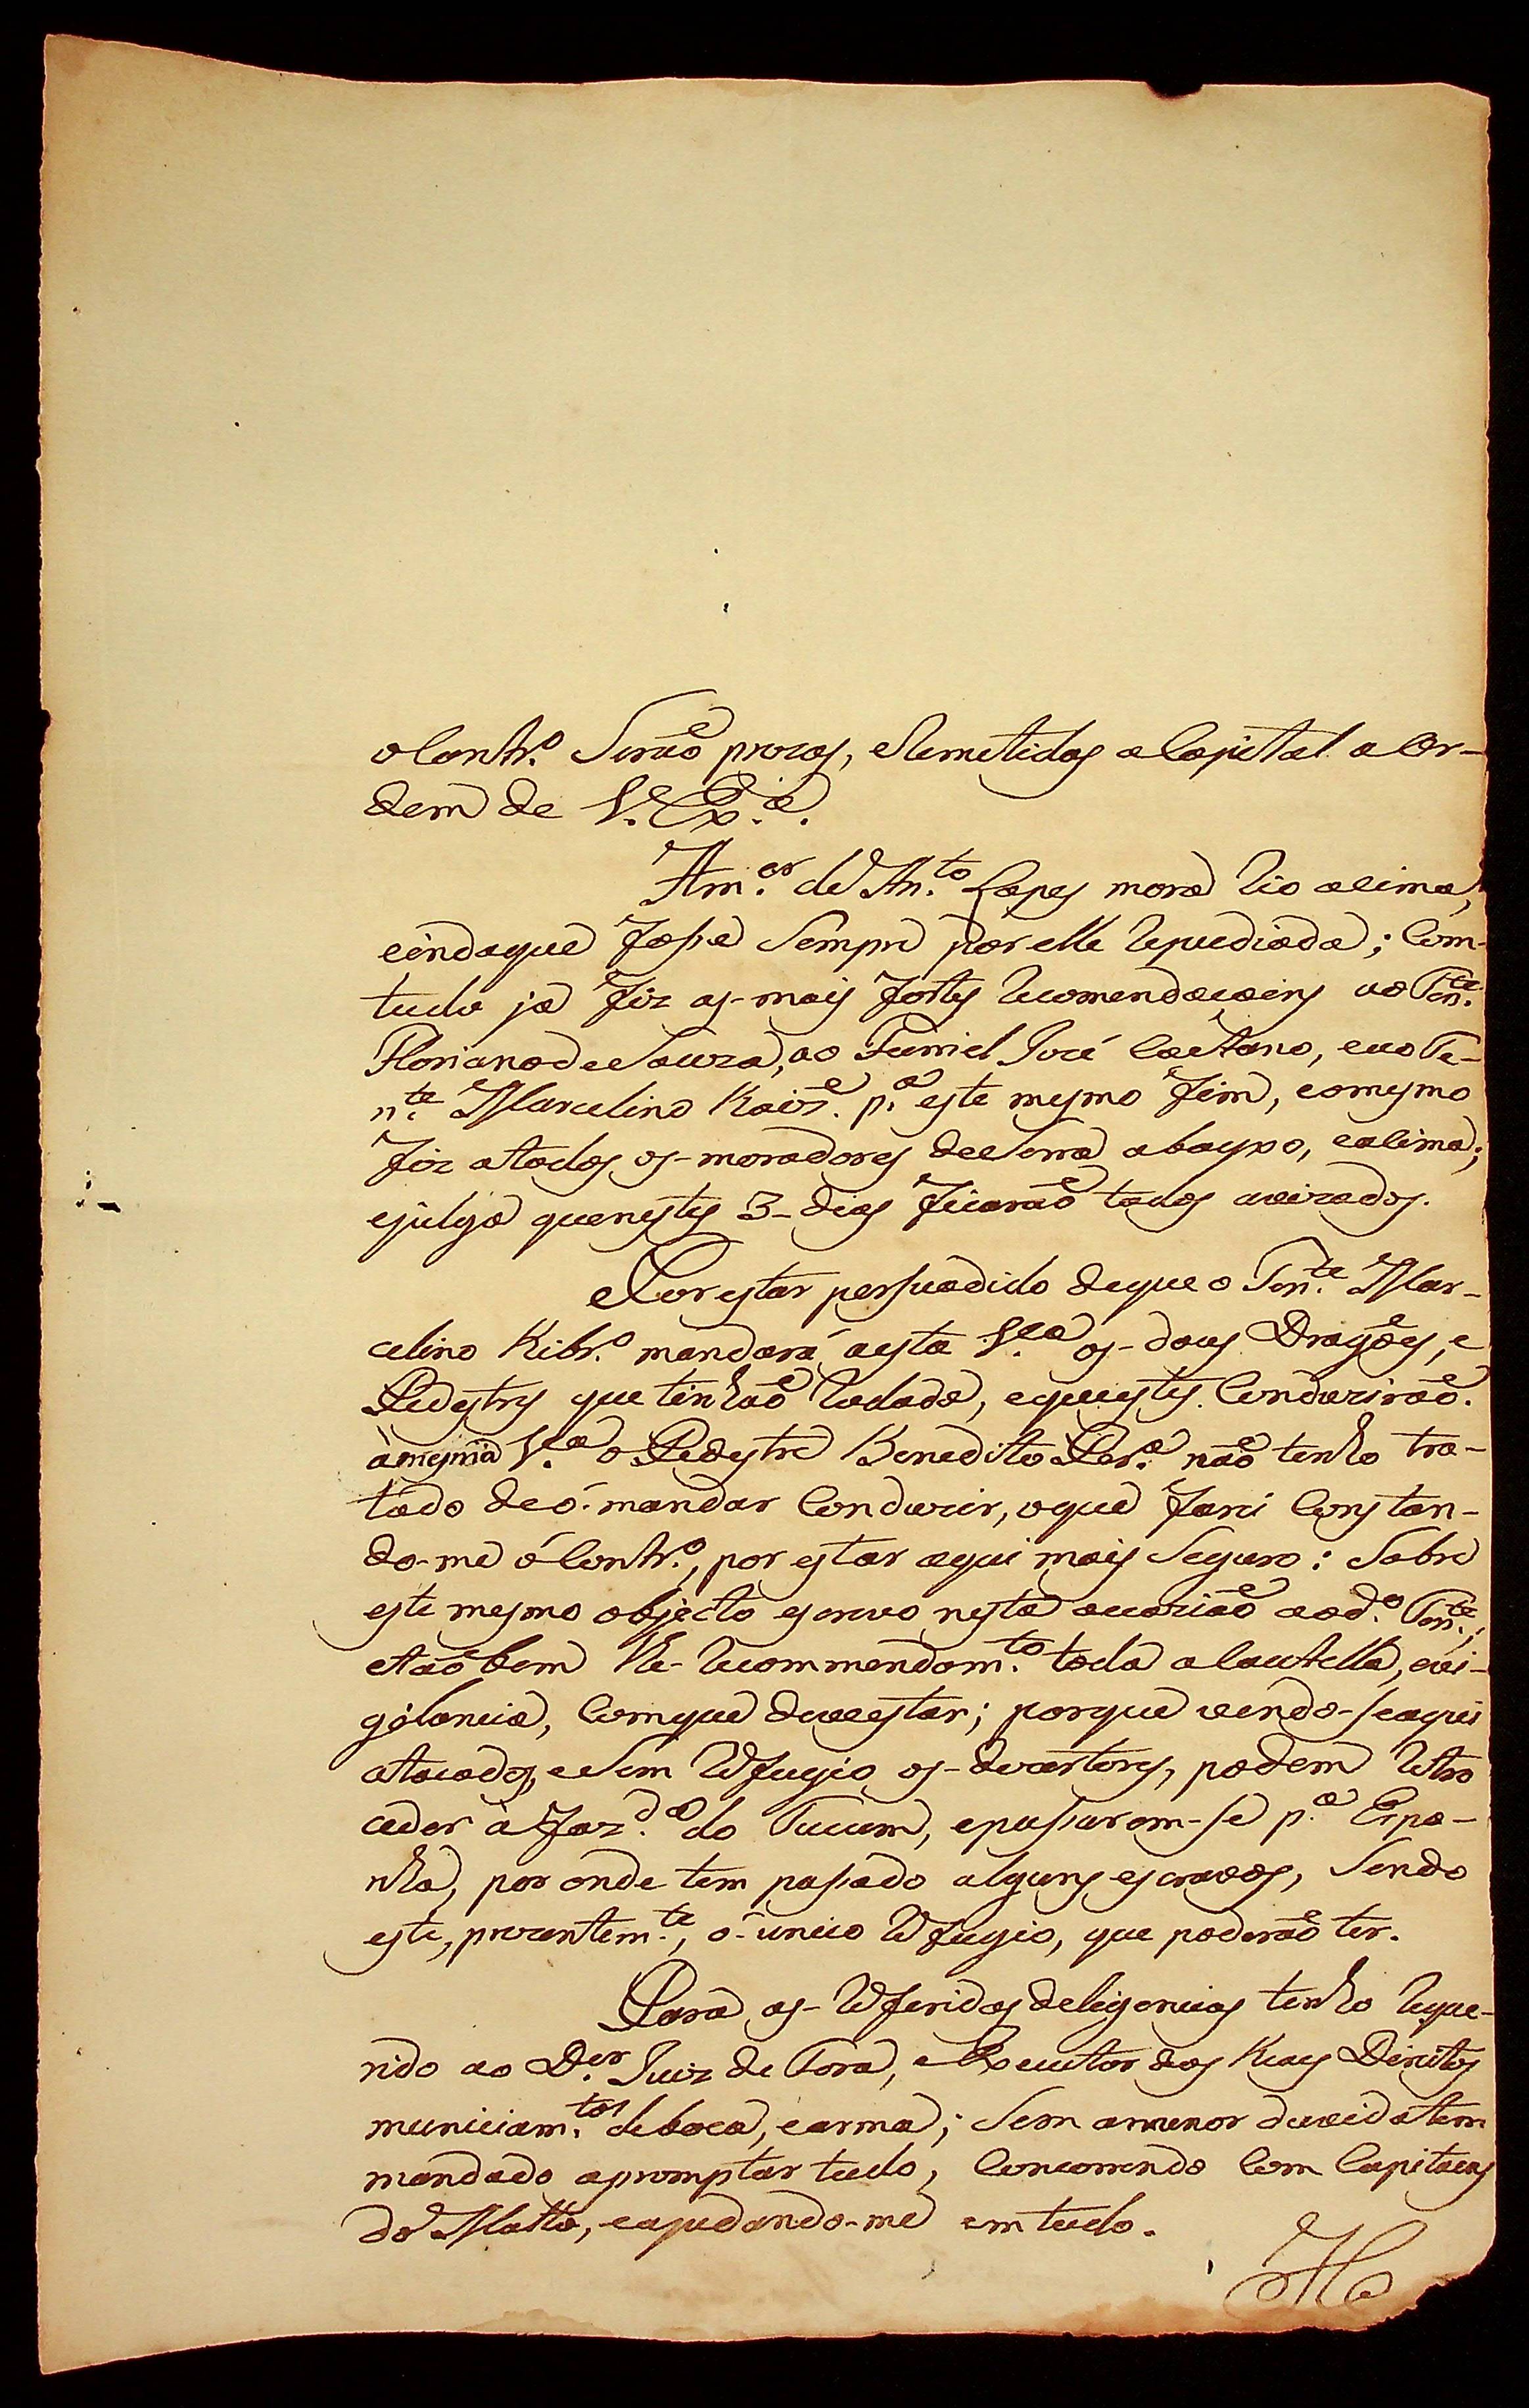 o Contr.º Serão prezos, e Remetidos a Capital a Or-
dem de V. Ex.ª.
A m.er de An.to Lopes mora Rio acima,
e inda que fosse Sempre por elle Repudiada; Com-
tudo já fiz as mais fortes Recomendacoens ao Ten.te
Floriano de Souza, ao Furriel José Caetano, e ao Te-
n.te Marcelino p.ª este mesmo fim, e o mesmo
fiz a todos os moradores de Serra abaixo, e acima;
e julgo que nestes 3 dias ficarão todos avizados.
Por estar persuadido de que o Ten.te Mar-
celino Ribr.º mandará a esta V.ª os dous Dragões, e
Pedestres que tinhão Rodado, e que estes Conduzirão
à mesma V.ª o Pedestre Benedito Per.ª não tenho tra-
tado de o mandar Conduzir, o que farei Constan-
do-me o Contr.º, por estar aqui mais Seguro: Sobre
este mesmo objecto escrevo nesta occazião ao d.º Ten.te,
e tão bem Re-Recommendam.to toda a Cautella, e vi-
gilancia, Com que deve estar; porque vendo-se aqui
atacados, e Sem Refugio os dezertores, podem Retro
ceder à Faz.dª do Tucum, e passarem-se p.ª Espa-
nha, por onde tem passado alguns escravos, Sendo
este, prezentem.te, o unico Refugio, que poderão ter.
Para as Referidas deligencias tenho Reque-
rido ao D.or Juiz de Fora, e Executor dos Reaes Direitos
municiam.tos de boca, e arma; Sem a menor duvida tem
mandado apromptar tudo, Concorrendo Com Capitaens
do Matto, e ajudando-me em tudo.